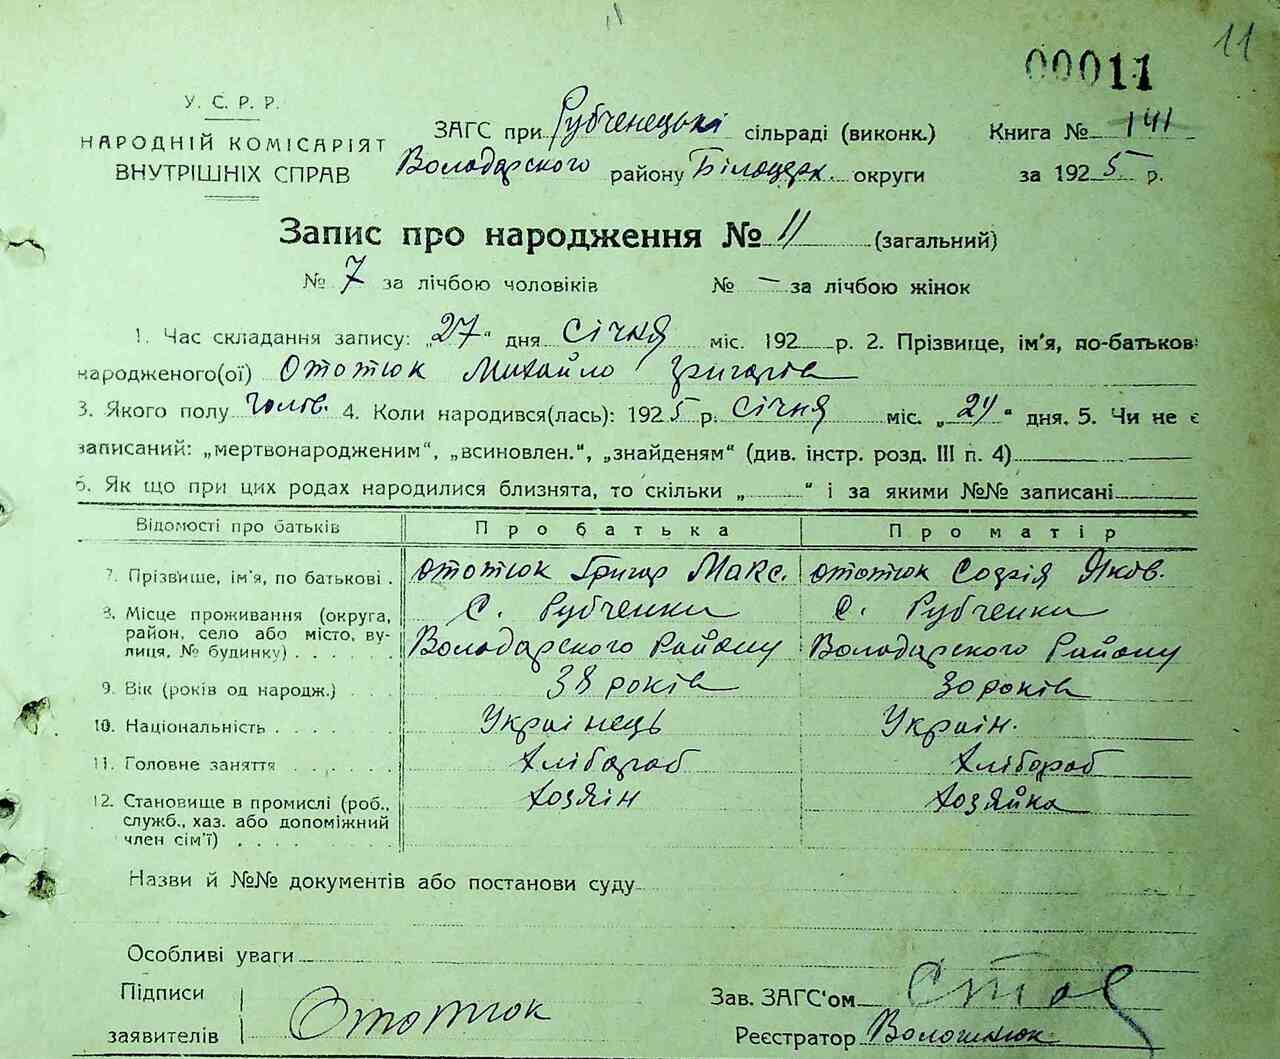 11
00011
У. С. Р. Р.
НАРОДНІЙ КОМІСАРІЯТ
ВНУТРІШНІХ СПРАВ
ЗАГС при Рубченецькі сільраді (виконк.) Книга № 141
Володарского району Білоцерк. округи за 1925 р.
Запис про народження № 11 (загальний)
№ 7 за лічбою чоловіків № — за лічбою жінок
1. Час складання запису: „27“ дня Січня міс. 192 р. 2. Прізвище, ім'я, по-батькові
народженого(ої) Ототюк Михайло Григорів
3. Якого полу Чолов. 4. Коли народився(лась): 1925 р. Січня міс. „24“ дня. 5. Чи не є
записаний: „мертвонародженим“, „всиновлен.“, „знайденям“ (див. інстр. розд. III п. 4)
6. Як що при цих родах народилися близнята, то скільки „ “ і за якими №№ записані
Відомості про батьків Про батька Про матір
7. Прізвище, ім'я, по батькові . Ототюк Григор Макс. Ототюк Софія Яков.
8. Місце проживання (округа, С. Рубченки С. Рубченки
район, село або місто, ву-
лиця, № будинку) . . . . . Володарского Району Володарского Району
9. Вік (років од народж.) . . . 38 років 30 років
10. Національність . . . . . . Украінець Украін.
11. Головне заняття . . . . Хлібороб Хлібороб
12. Становище в промислі (роб., Хозяін Хозяйка
служб., хаз. або допоміжний
член сім'ї) . . . . .
Назви й №№ документів або постанови суду
Особливі уваги
Підписи
заявителів Ототюк
Зав. ЗАГС'ом
Реєстратор Волошинюк